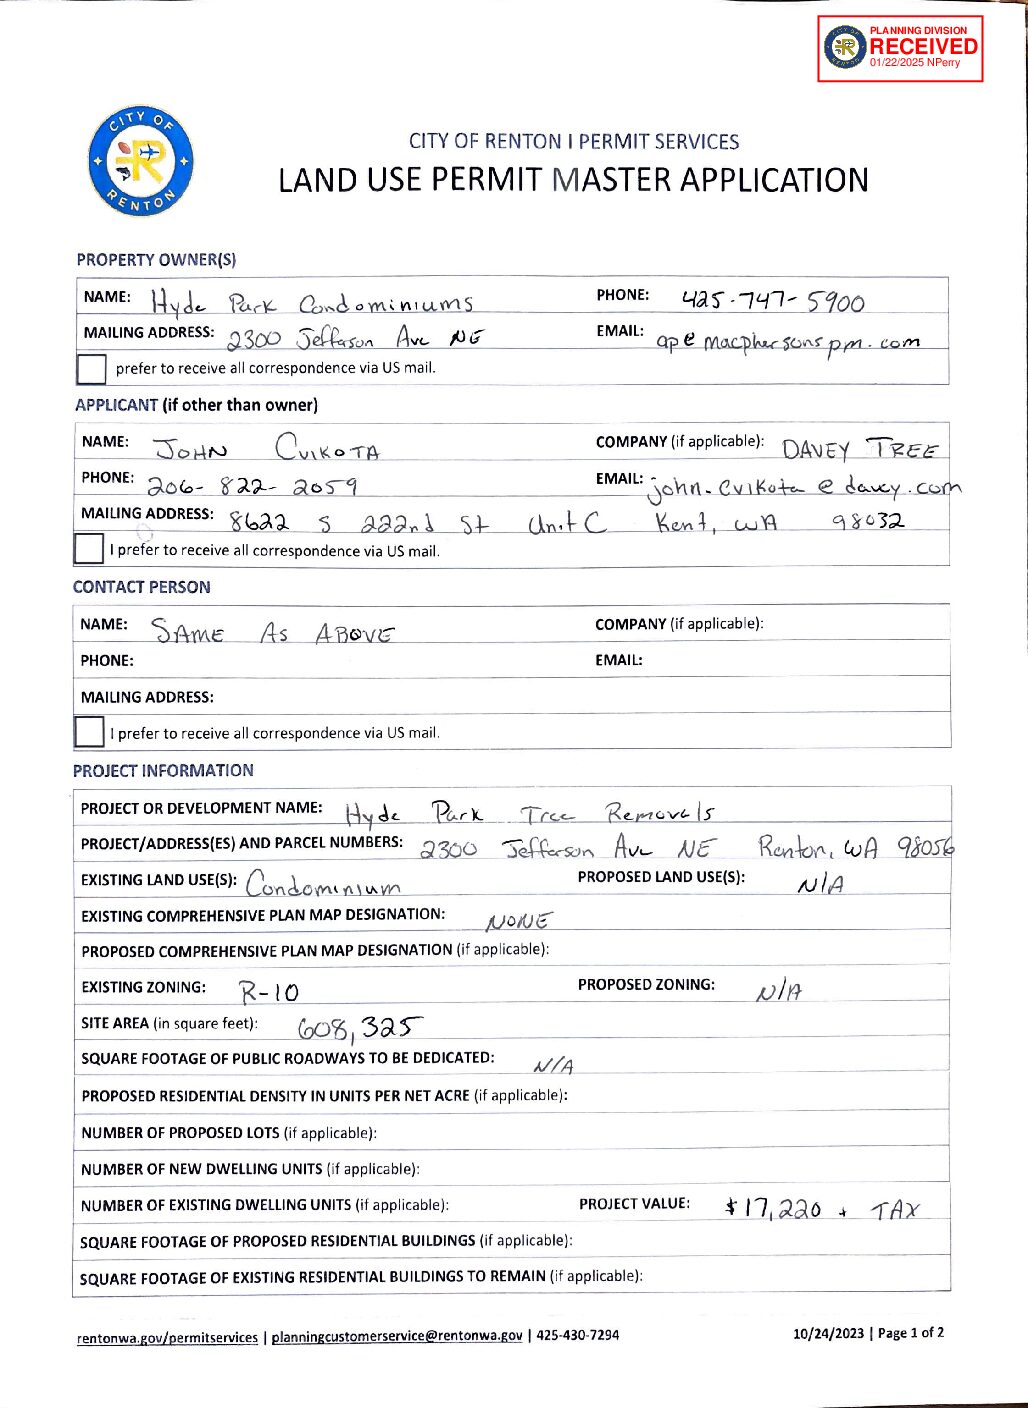 PLANNING DIVISION
RECEIVED
01/22/2025 NPerry
CITY OF
RENTON
CITY OF RENTON | PERMIT SERVICES
LAND USE PERMIT MASTER APPLICATION
PROPERTY OWNER(S)
NAME: Hyde Park Condominiums PHONE: 425-747-5900
MAILING ADDRESS: 2300 Jefferson Ave NE EMAIL: ap@macphersonspm.com
prefer to receive all correspondence via US mail.
APPLICANT (if other than owner)
NAME: JOHN CVIKOTA COMPANY (if applicable): DAVEY TREE
PHONE: 206-822-2059 EMAIL: john.cvikota@davey.com
MAILING ADDRESS: 8622 S 222nd St Unit C Kent, WA 98032
I prefer to receive all correspondence via US mail.
CONTACT PERSON
NAME: SAME AS ABOVE COMPANY (if applicable):
PHONE: EMAIL:
MAILING ADDRESS:
I prefer to receive all correspondence via US mail.
PROJECT INFORMATION
PROJECT OR DEVELOPMENT NAME: Hyde Park Tree Removals
PROJECT/ADDRESS(ES) AND PARCEL NUMBERS: 2300 Jefferson Ave NE Renton, WA 98056
EXISTING LAND USE(S): Condominium PROPOSED LAND USE(S): N/A
EXISTING COMPREHENSIVE PLAN MAP DESIGNATION: NONE
PROPOSED COMPREHENSIVE PLAN MAP DESIGNATION (if applicable):
EXISTING ZONING: R-10 PROPOSED ZONING: N/A
SITE AREA (in square feet): 608,325
SQUARE FOOTAGE OF PUBLIC ROADWAYS TO BE DEDICATED: N/A
PROPOSED RESIDENTIAL DENSITY IN UNITS PER NET ACRE (if applicable):
NUMBER OF PROPOSED LOTS (if applicable):
NUMBER OF NEW DWELLING UNITS (if applicable):
NUMBER OF EXISTING DWELLING UNITS (if applicable): PROJECT VALUE: $17,220 + TAX
SQUARE FOOTAGE OF PROPOSED RESIDENTIAL BUILDINGS (if applicable):
SQUARE FOOTAGE OF EXISTING RESIDENTIAL BUILDINGS TO REMAIN (if applicable):
rentonwa.gov/permitservices | planningcustomerservice@rentonwa.gov | 425-430-7294 10/24/2023 | Page 1 of 2